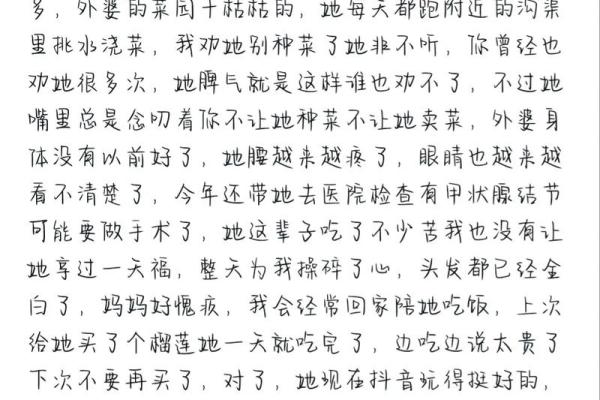 多，外婆的菜园干枯枯的，她每天都跑附近的沟渠
里挑水浇菜，我劝她别种菜了她非不听，你曾经也
劝她很多次，她脾气就是这样谁也劝不了，不过她
嘴里总是念叨着你不让她种菜不让她卖菜，外婆身
体没有以前好了，她腰越来越疼了，眼睛也越来越
看不清楚了，今年还带她去医院检查有甲状腺结节
可能要做手术了，她这辈子吃了不少苦我也没有让
她享过一天福，整天为我操碎了心，头发都已经全
白了，妈妈好愧疚，我会经常回家陪她吃饭，上次
给她买了个榴莲她一天就吃完了，边吃边说太贵了
下次不要再买了，对了，她现在抖音玩得挺好的，